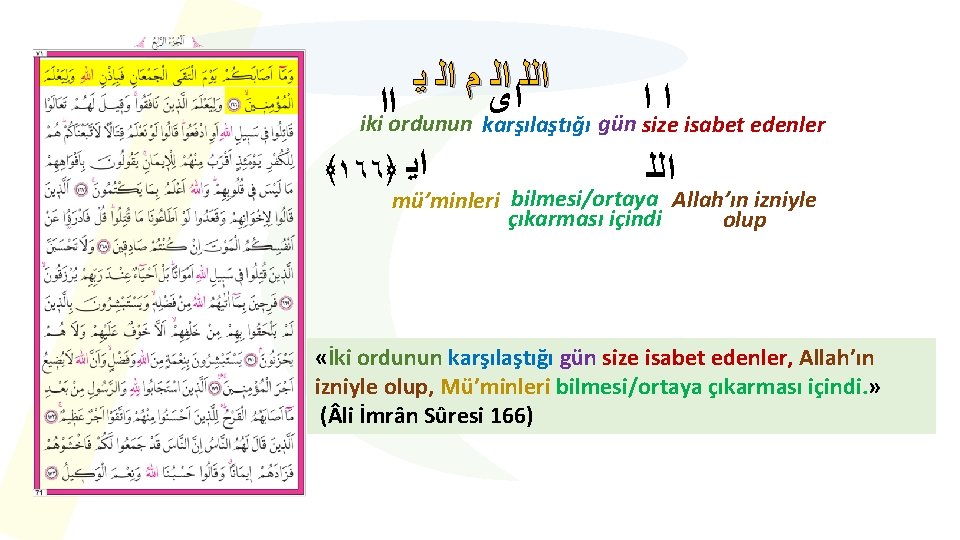 اَلْجُزْءُ الرَّابِعُ
٧١
وَمَٓا اَصَابَكُمْ يَوْمَ الْتَقَى الْجَمْعَانِ فَبِاِذْنِ اللّٰهِ وَلِيَعْلَمَ
الْمُؤْمِنٖينَۙ ﴿١٦٦﴾ وَلِيَعْلَمَ الَّذٖينَ نَافَقُواۚ وَقٖيلَ لَهُمْ تَعَالَوْا
قَاتِلُوا فٖي سَبٖيلِ اللّٰهِ اَوِ ادْفَعُواۜ قَالُوا لَوْ نَعْلَمُ قِتَالًا لَاتَّبَعْنَاكُمْۜ هُمْ
لِلْكُفْرِ يَوْمَئِذٍ اَقْرَبُ مِنْهُمْ لِلْاٖيمَانِۚ يَقُولُونَ بِاَفْوَاهِهِمْ
مَا لَيْسَ فٖي قُلُوبِهِمْۜ وَاللّٰهُ اَعْلَمُ بِمَا يَكْتُمُونَۚ ﴿١٦٧﴾ اَلَّذٖينَ
قَالُوا لِاِخْوَانِهِمْ وَقَعَدُوا لَوْ اَطَاعُونَا مَا قُتِلُواۜ قُلْ فَادْرَؤُ۫ا عَنْ
اَنْفُسِكُمُ الْمَوْتَ اِنْ كُنْتُمْ صَادِقٖينَ ﴿١٦٨﴾ وَلَا تَحْسَبَنَّ
الَّذٖينَ قُتِلُوا فٖي سَبٖيلِ اللّٰهِ اَمْوَاتًاۜ بَلْ اَحْيَٓاءٌ عِنْدَ رَبِّهِمْ يُرْزَقُونَۙ
﴿١٦٩﴾ فَرِحٖينَ بِمَٓا اٰتٰيهُمُ اللّٰهُ مِنْ فَضْلِهٖۙ وَيَسْتَبْشِرُونَ بِالَّذٖينَ
لَمْ يَلْحَقُوا بِهِمْ مِنْ خَلْفِهِمْۙ اَلَّا خَوْفٌ عَلَيْهِمْ وَلَا هُمْ
يَحْزَنُونَۢ ﴿١٧٠﴾ يَسْتَبْشِرُونَ بِنِعْمَةٍ مِنَ اللّٰهِ وَفَضْلٍۙ وَاَنَّ اللّٰهَ لَا يُضٖيعُ
اَجْرَ الْمُؤْمِنٖينَۚۛ ﴿١٧١﴾ اَلَّذٖينَ اسْتَجَابُوا لِلّٰهِ وَالرَّسُولِ مِنْ بَعْدِ
مَٓا اَصَابَهُمُ الْقَرْحُۜۛ لِلَّذٖينَ اَحْسَنُوا مِنْهُمْ وَاتَّقَوْا اَجْرٌ عَظٖيمٌۚ ﴿١٧٢﴾
اَلَّذٖينَ قَالَ لَهُمُ النَّاسُ اِنَّ النَّاسَ قَدْ جَمَعُوا لَكُمْ فَاخْشَوْهُمْ
فَزَادَهُمْ اٖيمَانًاۗ وَقَالُوا حَسْبُنَا اللّٰهُ وَنِعْمَ الْوَكٖيلُ ﴿١٧٣﴾
71
ﺍ ﺍ ﺍﻟﻠ ﺍﻟ ﻡ ﺍﻟ ﻳ ﺍ ﻯ ﺍﺍ
iki ordunun karşılaştığı gün size isabet edenler
ﺍﻟﻠ ﺍﻳ ﴿١٦٦﴾
mü’minleri bilmesi/ortaya çıkarması içindi Allah’ın izniyle olup
«İki ordunun karşılaştığı gün size isabet edenler, Allah’ın
izniyle olup, Mü’minleri bilmesi/ortaya çıkarması içindi. »
(Âli İmrân Sûresi 166)